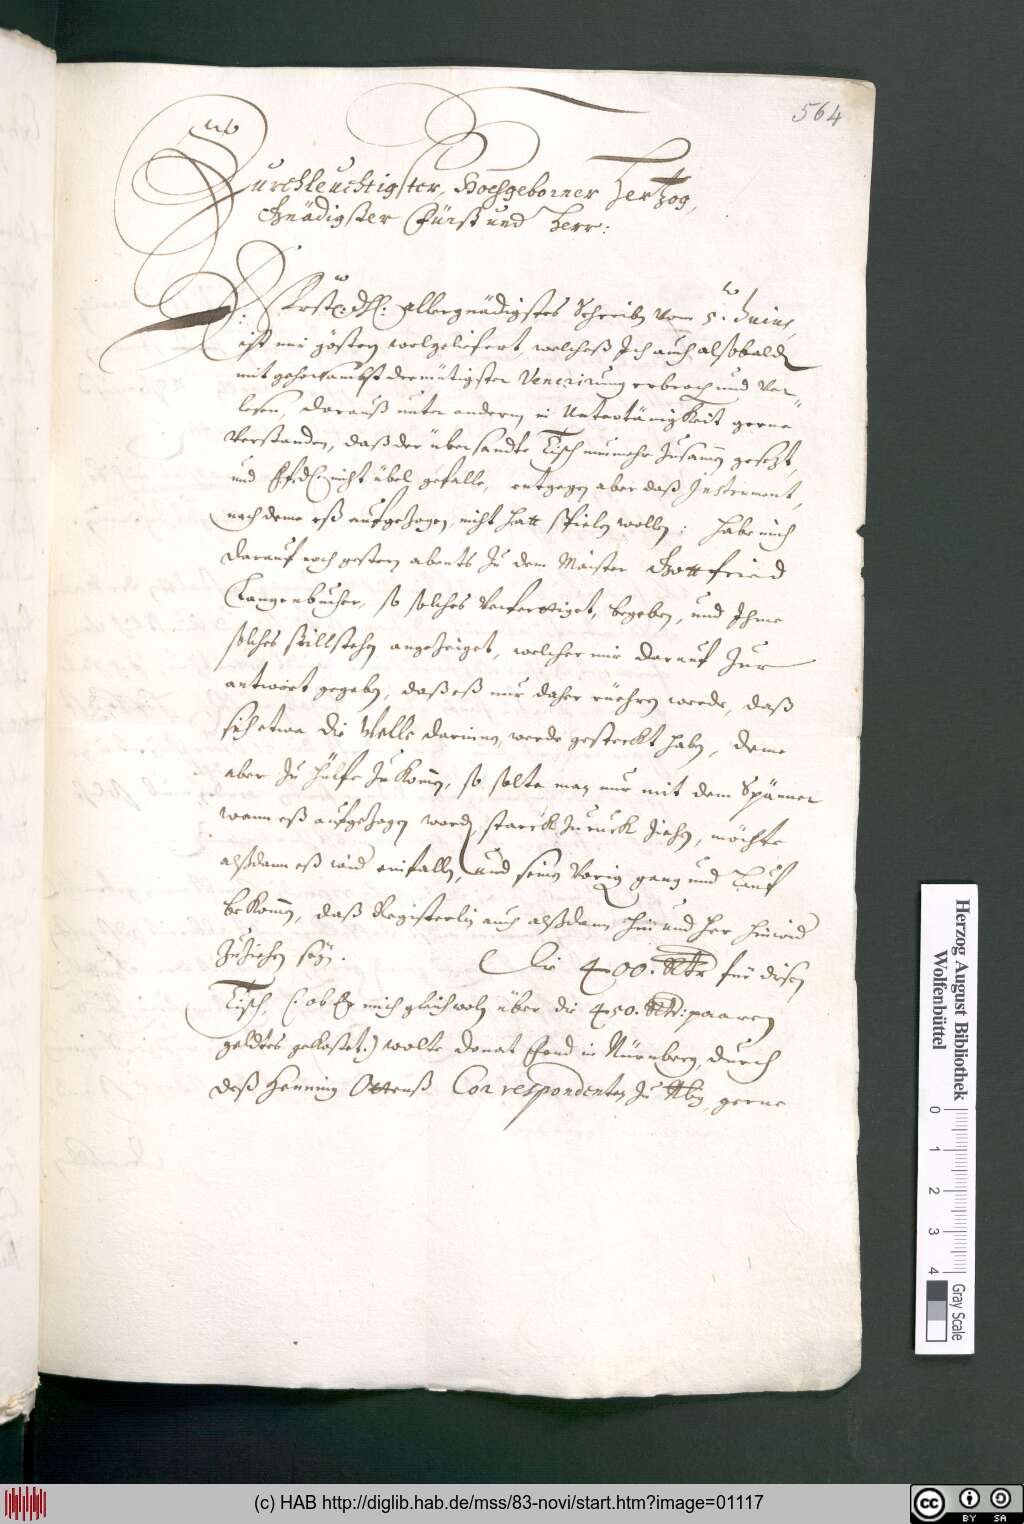 564
Durchleuchtigster, Hochgeborner Hertzog,
Gnädigster Fürst und Herr:
allergnädigstes Schreiben vom 5. Junius,
ist mir gestern wolgeliefert, welches Ich auch alsobald
mit gehorsambst demütigster Venerirung erbroch und ver-
lesen, darauß unter anderm in Untertänigkeit gerne
verstanden, daß der übersandte Tisch nunmehr zusamen gesezt,
und nicht übel gefalle, entgegen aber daß Instrument,
nach deme eß aufgezogen, nicht hatt spielen wollen: habe mich
darauf noch gestern abents zu dem Maister Gottfried
Langenbucher, so solches verfertiget, begeben, und Ihme
solches stillstehen angezeiget, welcher mir darauf zur
antwort gegeben, daß eß nur daher rüehren werde, daß
sich etwa die Welle darinnen, werde gesteckt haben, deme
aber zu hülfe zukommen, so solte man nur mit dem Spänner
wann eß aufgezogen worden starck zuruck ziehen, möchte
alßdann eß wider einfallen, und seinen vorigen gang und Lauf
bekommen, daß Registerlin auch alßdann hin und her hinwider
zuziehen seyn. Die 400. Rthr für disen
Tisch, (: ob Er mich gleichwoln über die 450. Rthr: paaren
geldtes gekostet:) wolte Donat Fend in Nürnberg, durch
deß Henning Ottenß Correspondenten zu gerne
Herzog August Bibliothek
Wolfenbüttel
0 1 2 3 4
Gray Scale
(c) HAB http://diglib.hab.de/mss/83-novi/start.htm?image=01117
cc BY SA